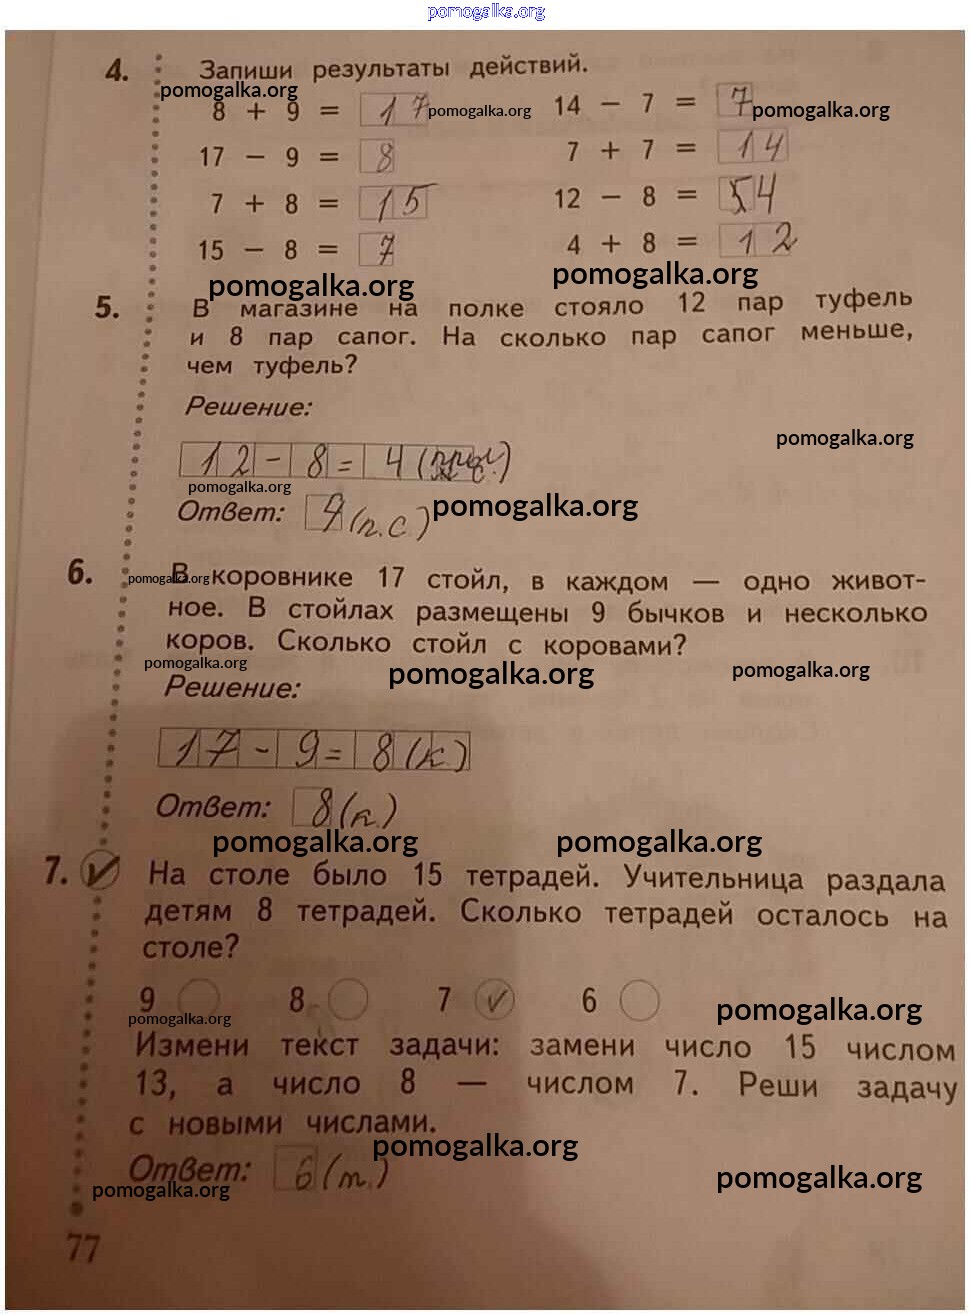 pomogalka.org
4. Запиши результаты действий.
pomogalka.org
8 + 9 = 17 pomogalka.org 14 − 7 = 7 pomogalka.org
17 − 9 = 8 7 + 7 = 14
7 + 8 = 15 12 − 8 = 54
15 − 8 = 7 4 + 8 = 12
pomogalka.org pomogalka.org
5. В магазине на полке стояло 12 пар туфель
и 8 пар сапог. На сколько пар сапог меньше,
чем туфель?
Решение:
pomogalka.org
12 − 8 = 4 (
pomogalka.org
Ответ: 4 (п.с) pomogalka.org
6. pomogalka.org В коровнике 17 стойл, в каждом — одно живот-
ное. В стойлах размещены 9 бычков и несколько
коров. Сколько стойл с коровами?
pomogalka.org pomogalka.org pomogalka.org
Решение:
17 − 9 = 8 (к.)
Ответ: 8 (к.)
pomogalka.org pomogalka.org
7. На столе было 15 тетрадей. Учительница раздала
детям 8 тетрадей. Сколько тетрадей осталось на
столе?
9 8 7 ✓ 6
pomogalka.org pomogalka.org
Измени текст задачи: замени число 15 числом
13, а число 8 — числом 7. Реши задачу
с новыми числами.
pomogalka.org
Ответ: 6 (т.)
pomogalka.org pomogalka.org
77